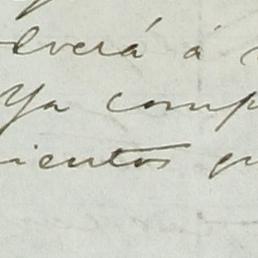 olverá á
Ya comp
ientos qu